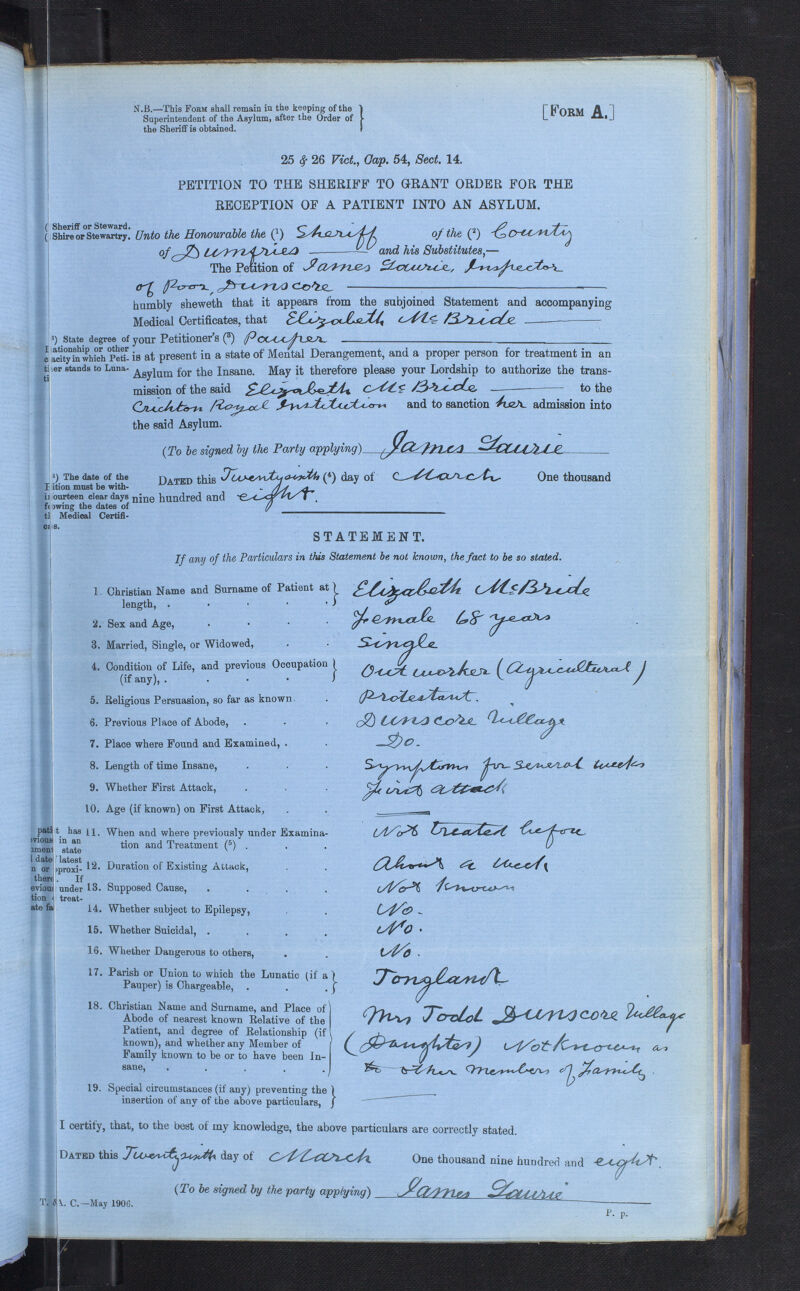 N.B.—This Form shall remain in the keeping of the
Superintendent of the Asylum, after the Order of
the Sheriff is obtained.
[Form A.]
25 & 26 Vict., Cap. 54, Sect. 14.
PETITION TO THE SHERIFF TO GRANT ORDER FOR THE
RECEPTION OF A PATIENT INTO AN ASYLUM.
( Sheriff or Steward.
( Shire or Stewartry.
Unto the Honourable the (1) Sheriff of the (2) County
of Dumfries and his Substitutes,—
The Petition of James Laurie, Inspector
of Poor, Dunscore
humbly sheweth that it appears from the subjoined Statement and accompanying
Medical Certificates, that Elizabeth McBride
3) State degree of
ationship or other
acity in which Peti-
er stands to Luna-
your Petitioner's (3) Pauper
is at present in a state of Mental Derangement, and a proper person for treatment in an
Asylum for the Insane. May it therefore please your Lordship to authorize the trans-
mission of the said Elizabeth McBride to the
Crichton Royal Institution and to sanction her admission into
the said Asylum.
(To be signed by the Party applying) James Laurie
4) The date of the
ition must be with-
ourteen clear days
owing the dates of
Medical Certifi-
s.
Dated this Twentysixth (4) day of March One thousand
nine hundred and eight.
STATEMENT.
If any of the Particulars in this Statement be not known, the fact to be so stated.
1. Christian Name and Surname of Patient at
length, . . . . . Elizabeth McBride
2. Sex and Age, . . . . Female 68 years
3. Married, Single, or Widowed, . . Single
4. Condition of Life, and previous Occupation
(if any), . . . . Out worker (Agricultural)
5. Religious Persuasion, so far as known . Protestant.
6. Previous Place of Abode, . . . Dunscore Village
7. Place where Found and Examined, . . Do.
8. Length of time Insane, . . . Symptoms for several weeks
9. Whether First Attack, . . . First attack
10. Age (if known) on First Attack, . .
11. When and where previously under Examina-
tion and Treatment (5) . . . Not treated before
12. Duration of Existing Attack, . . About a week
13. Supposed Cause, . . . . Not known
14. Whether subject to Epilepsy, . . No.
15. Whether Suicidal, . . . . No.
16. Whether Dangerous to others, . . No.
17. Parish or Union to which the Lunatic (if a
Pauper) is Chargeable, . . . Tongland
18. Christian Name and Surname, and Place of
Abode of nearest known Relative of the
Patient, and degree of Relationship (if
known), and whether any Member of
Family known to be or to have been In-
sane, . . . . .
Mrs Todd Dunscore Village
(Daughter) Not known as
to other members of Family.
19. Special circumstances (if any) preventing the
insertion of any of the above particulars,
pati t has
in an
state
latest
proxi-
. If
under
treat-
I certify, that, to the best of my knowledge, the above particulars are correctly stated.
Dated this Twentysixth day of March One thousand nine hundred and eight.
(To be signed by the party applying) James Laurie
T. & A. C.—May 1906.
P. p.